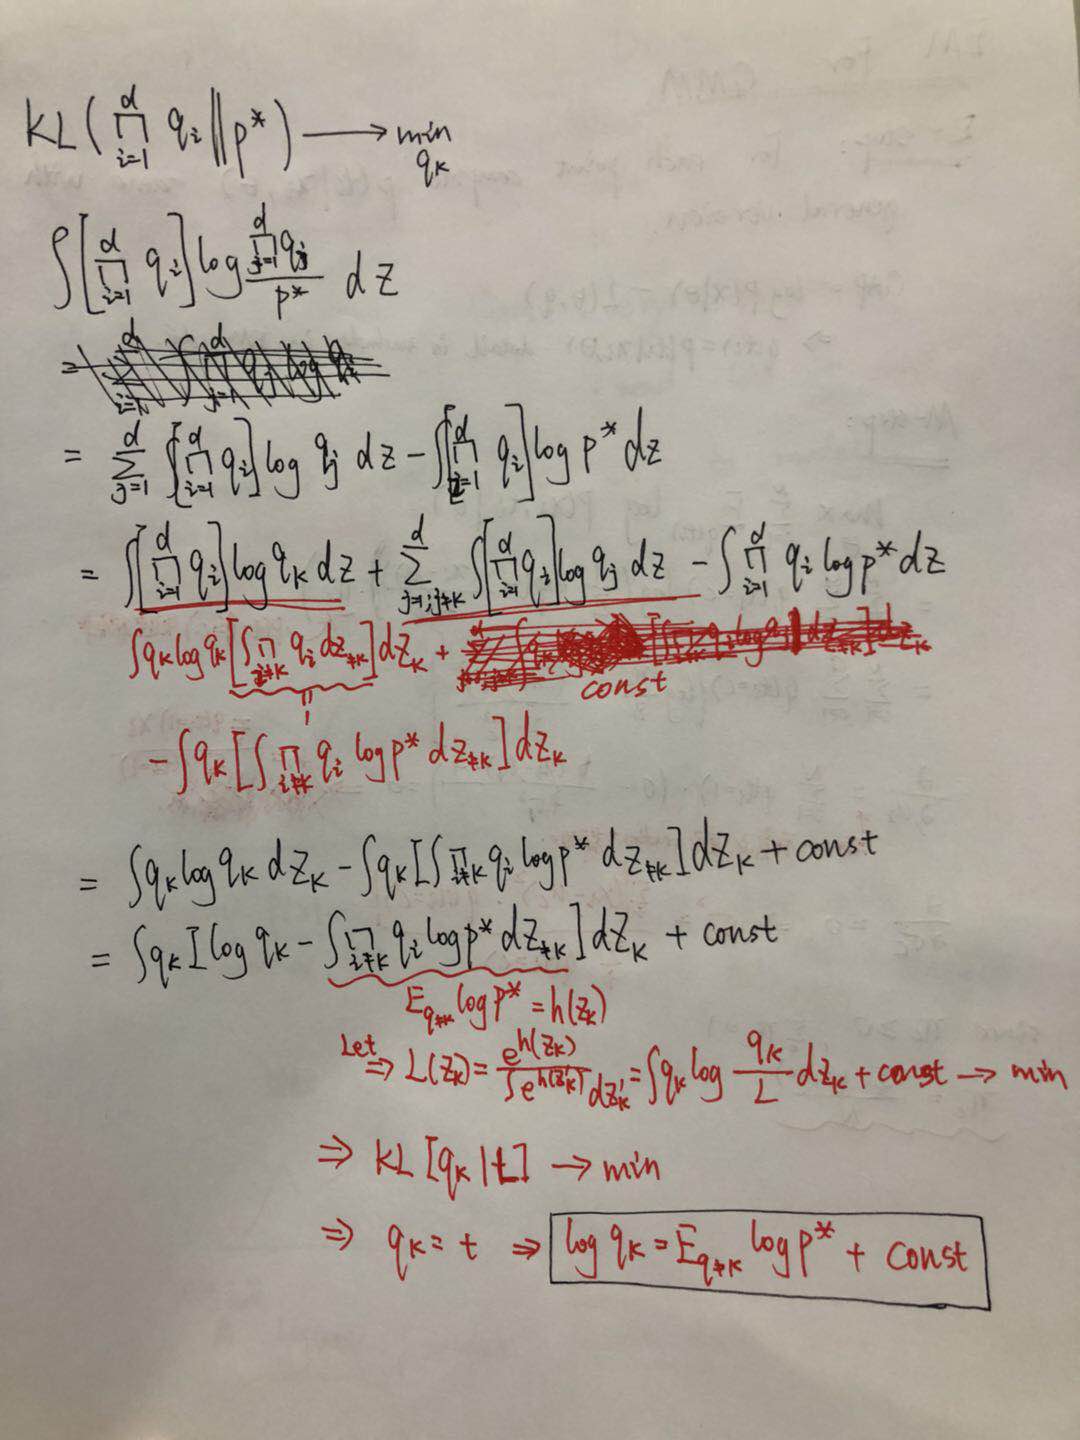 KL(∏_{i=1}^{d} q_i || p*) ⟶ min_{q_k}
∫[∏_{i=1}^{d} q_i] log (∏_{j=1}^{d} q_j / p*) dz
=
= ∑_{j=1}^{d} ∫[∏_{i=1}^{d} q_i] log q_j dz − ∫[∏_{i=1}^{d} q_i] log p* dz
= ∫[∏_{i=1}^{d} q_i] log q_k dz + ∑_{j=1, j≠k}^{d} ∫[∏_{i=1}^{d} q_i] log q_j dz − ∫ ∏_{i=1}^{d} q_i log p* dz
∫ q_k log q_k [∫ ∏_{i≠k} q_i dz_{≠k}] dz_k +
const
1
− ∫ q_k [∫ ∏_{i≠k} q_i log p* dz_{≠k}] dz_k
= ∫ q_k log q_k dz_k − ∫ q_k [∫ ∏_{i≠k} q_i log p* dz_{≠k}] dz_k + const
= ∫ q_k [log q_k − ∫ ∏_{i≠k} q_i log p* dz_{≠k}] dz_k + const
E_{q≠k} log p* = h(z_k)
Let ⇒ L(z_k) = e^{h(z_k)} / ∫ e^{h(z_k')} dz_k' = ∫ q_k log (q_k / L) dz_k + const → min
⇒ KL[q_k | t] → min
⇒ q_k = t ⇒ log q_k = E_{q≠k} log p* + const